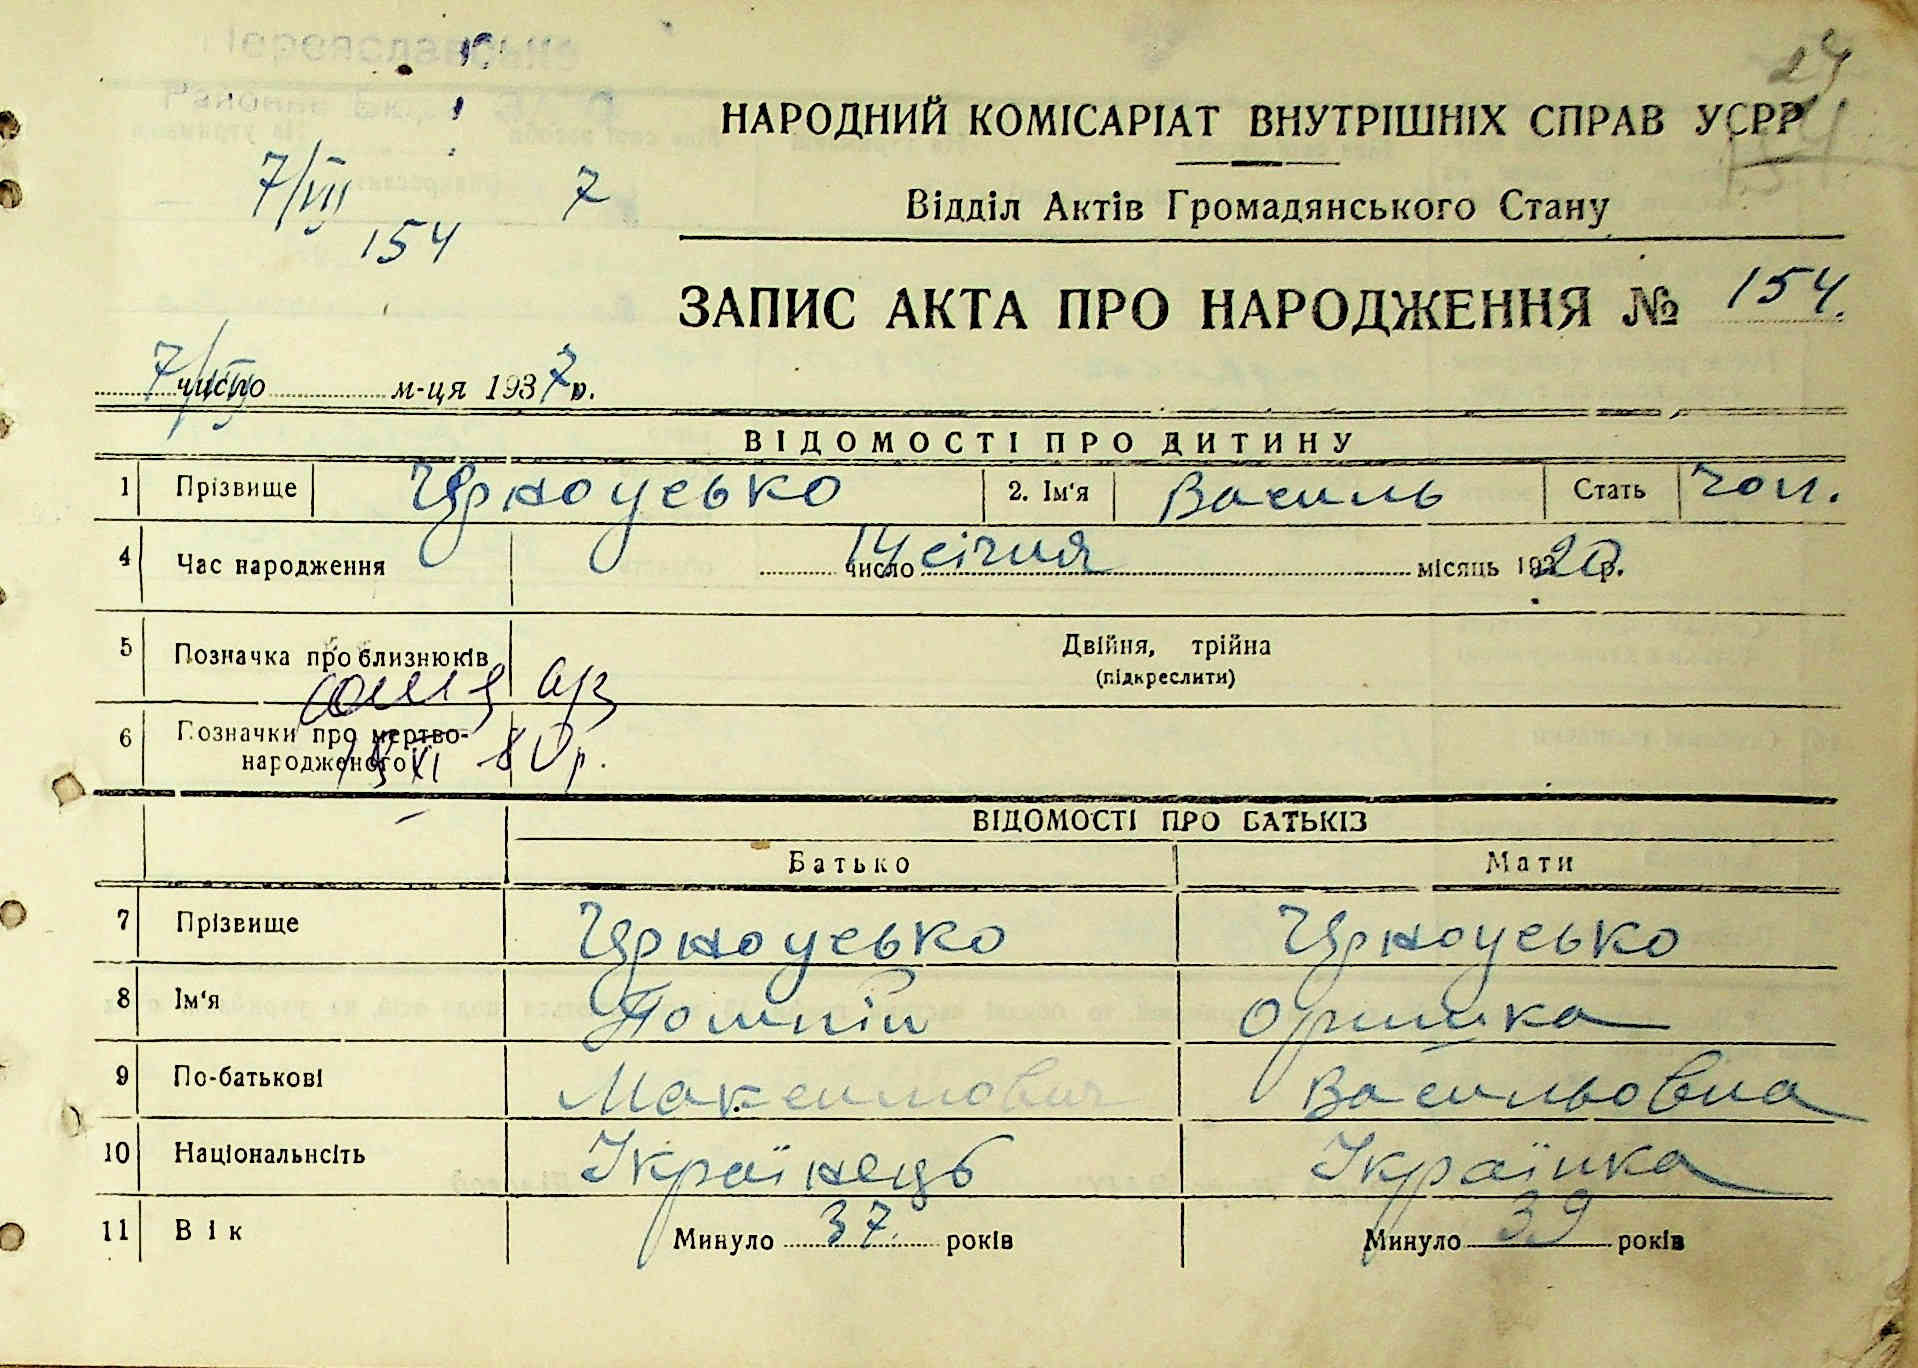 Переяславське
24
154
НАРОДНИЙ КОМІСАРІАТ ВНУТРІШНІХ СПРАВ УСРР
7/VII 7
154
Відділ Актів Громадянського Стану
ЗАПИС АКТА ПРО НАРОДЖЕННЯ № 154.
7/VII число м-ця 1937 р.
ВІДОМОСТІ ПРО ДИТИНУ
1 Прізвище Чорноусько 2. Ім'я Василь Стать чол.
4 Час народження 14 число січня місяць 1920 р.
5 Позначка про близнюків Двійня, трійна
(підкреслити)
6 Позначки про мертво-
народженого XI 80 р.
ВІДОМОСТІ ПРО БАТЬКІВ
Батько Мати
7 Прізвище Чорноусько Чорноусько
8 Ім'я Оришка
9 По-батькові Максимович Васильовна
10 Національнсіть Українець Українка
11 Вік Минуло 37 років Минуло 39 років